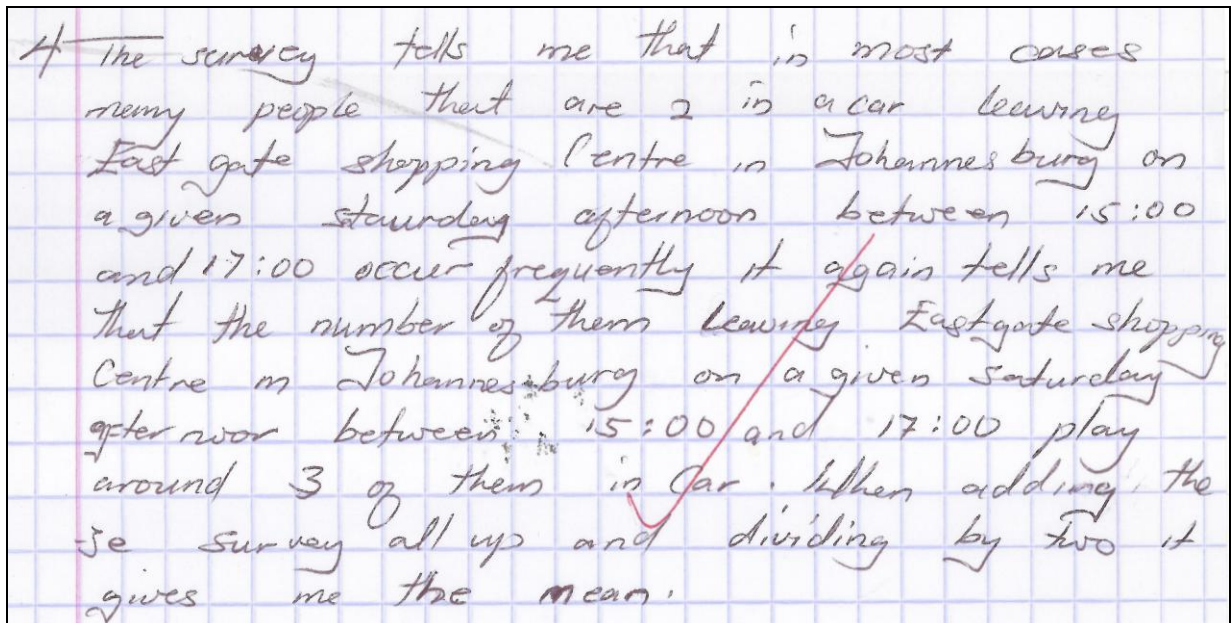 4 The survey tells me that in most cases
many people that are 2 in a car leaving
East gate shopping Centre in Johannesburg on
a given staurday afternoon between 15:00
and 17:00 occur frequently it again tells me
that the number of them leaving Eastgate shopping
Centre in Johannesburg on a given Saturday
after noor between 15:00 and 17:00 play
around 3 of them in Car. When adding the
-se survey all up and dividing by two it
gives me the mean.